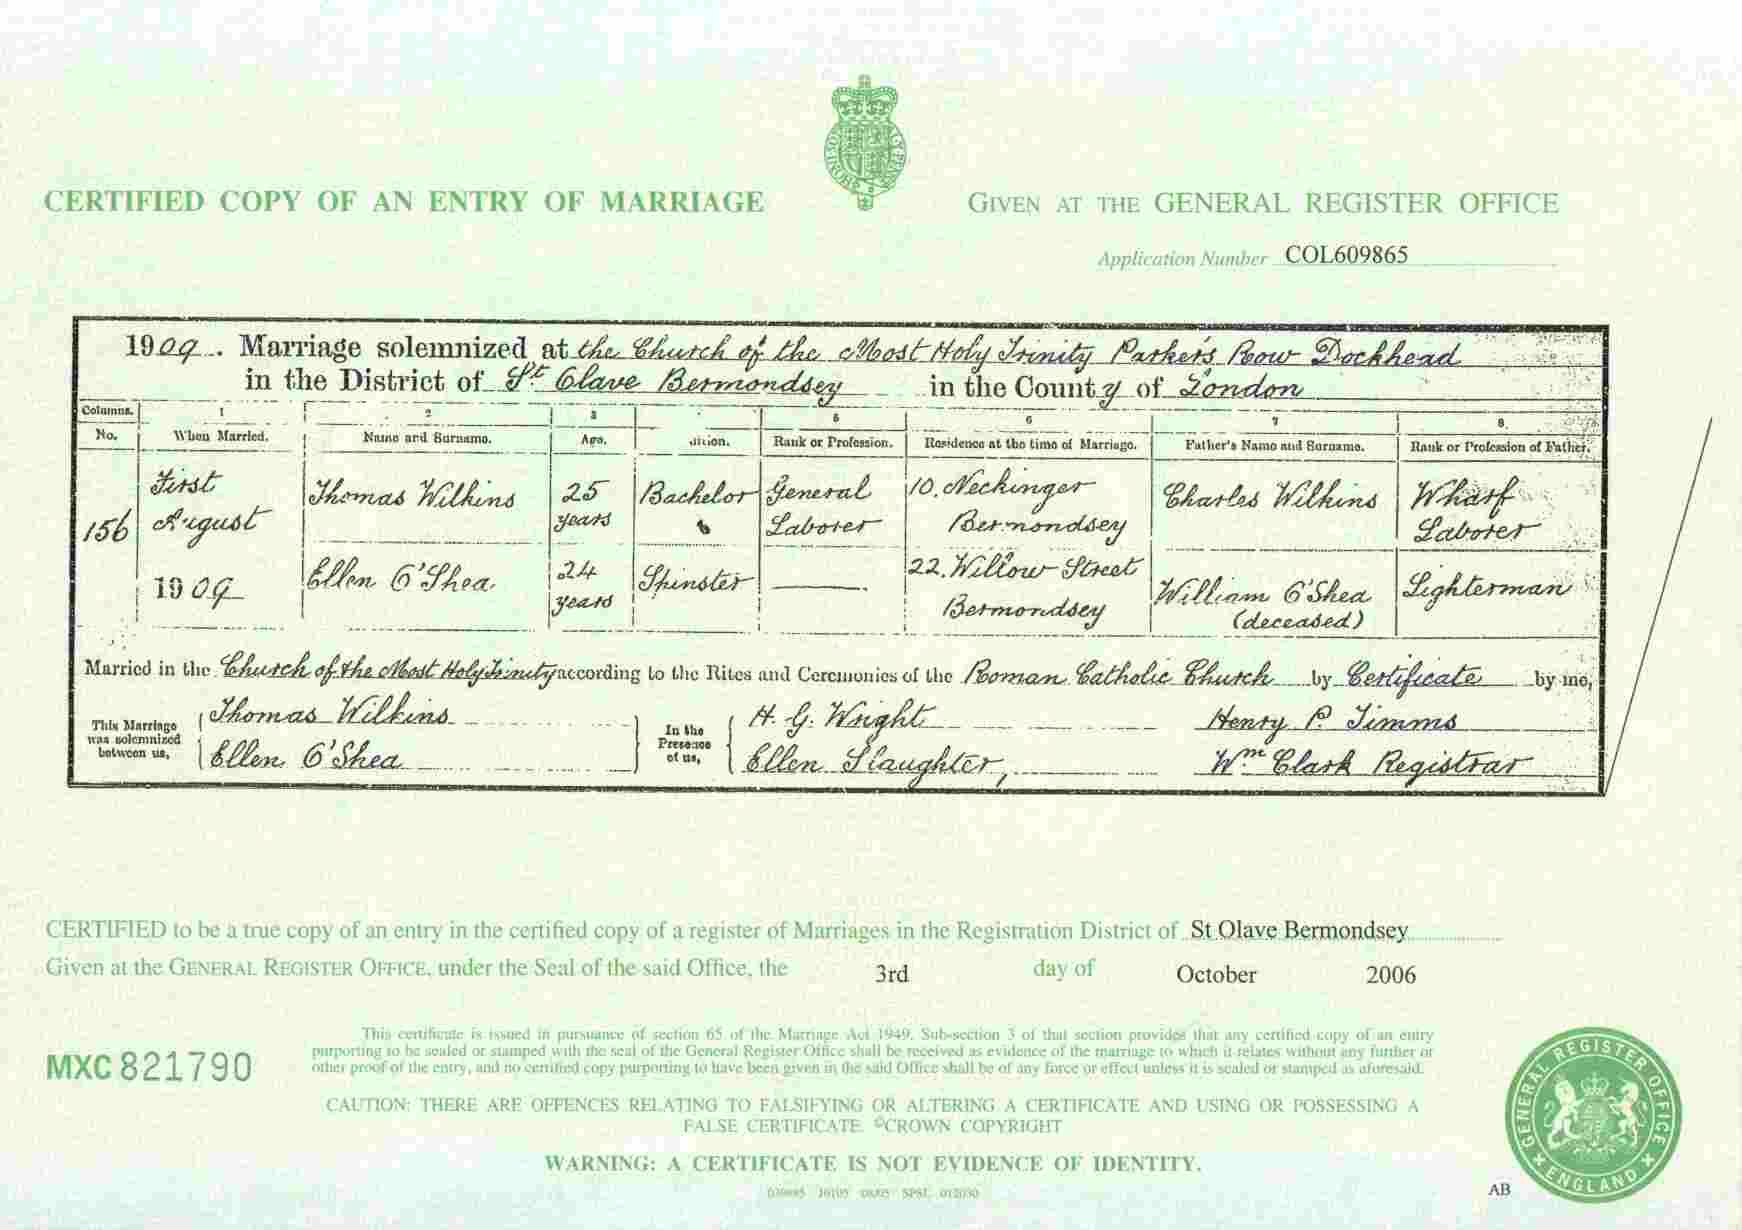 CERTIFIED COPY OF AN ENTRY OF MARRIAGE
GIVEN AT THE GENERAL REGISTER OFFICE
Application Number COL609865
1909. Marriage solemnized at the Church of the Most Holy Trinity Parker's Row Dockhead
in the District of St. Olave Bermondsey in the County of London
Columns. 1 2 3 5 6 7 8
No. When Married. Name and Surname. Age. Rank or Profession. Residence at the time of Marriage. Father's Name and Surname. Rank or Profession of Father.
156
First
August
1909
Thomas Wilkins
25
years
Bachelor
General
Laborer
10. Neckinger
Bermondsey
Charles Wilkins
Wharf
Laborer
Ellen O'Shea
24
years
Spinster
22. Willow Street
Bermondsey
William O'Shea
(deceased)
Lighterman
Married in the Church of the Most Holy Trinity according to the Rites and Ceremonies of the Roman Catholic Church by Certificate by me,
This Marriage
was solemnized
between us,
Thomas Wilkins
Ellen O'Shea
In the
Presence
of us,
H. G. Wright
Ellen Slaughter,
Henry P. Timms
Wm Clark Registrar
CERTIFIED to be a true copy of an entry in the certified copy of a register of Marriages in the Registration District of St Olave Bermondsey
Given at the GENERAL REGISTER OFFICE, under the Seal of the said Office, the 3rd day of October 2006
This certificate is issued in pursuance of section 65 of the Marriage Act 1949. Sub-section 3 of that section provides that any certified copy of an entry
purporting to be sealed or stamped with the seal of the General Register Office shall be received as evidence of the marriage to which it relates without any further or
other proof of the entry, and no certified copy purporting to have been given in the said Office shall be of any force or effect unless it is sealed or stamped as aforesaid.
MXC 821790
CAUTION: THERE ARE OFFENCES RELATING TO FALSIFYING OR ALTERING A CERTIFICATE AND USING OR POSSESSING A
FALSE CERTIFICATE. ©CROWN COPYRIGHT
WARNING: A CERTIFICATE IS NOT EVIDENCE OF IDENTITY.
GENERAL REGISTER OFFICE
ENGLAND
AB